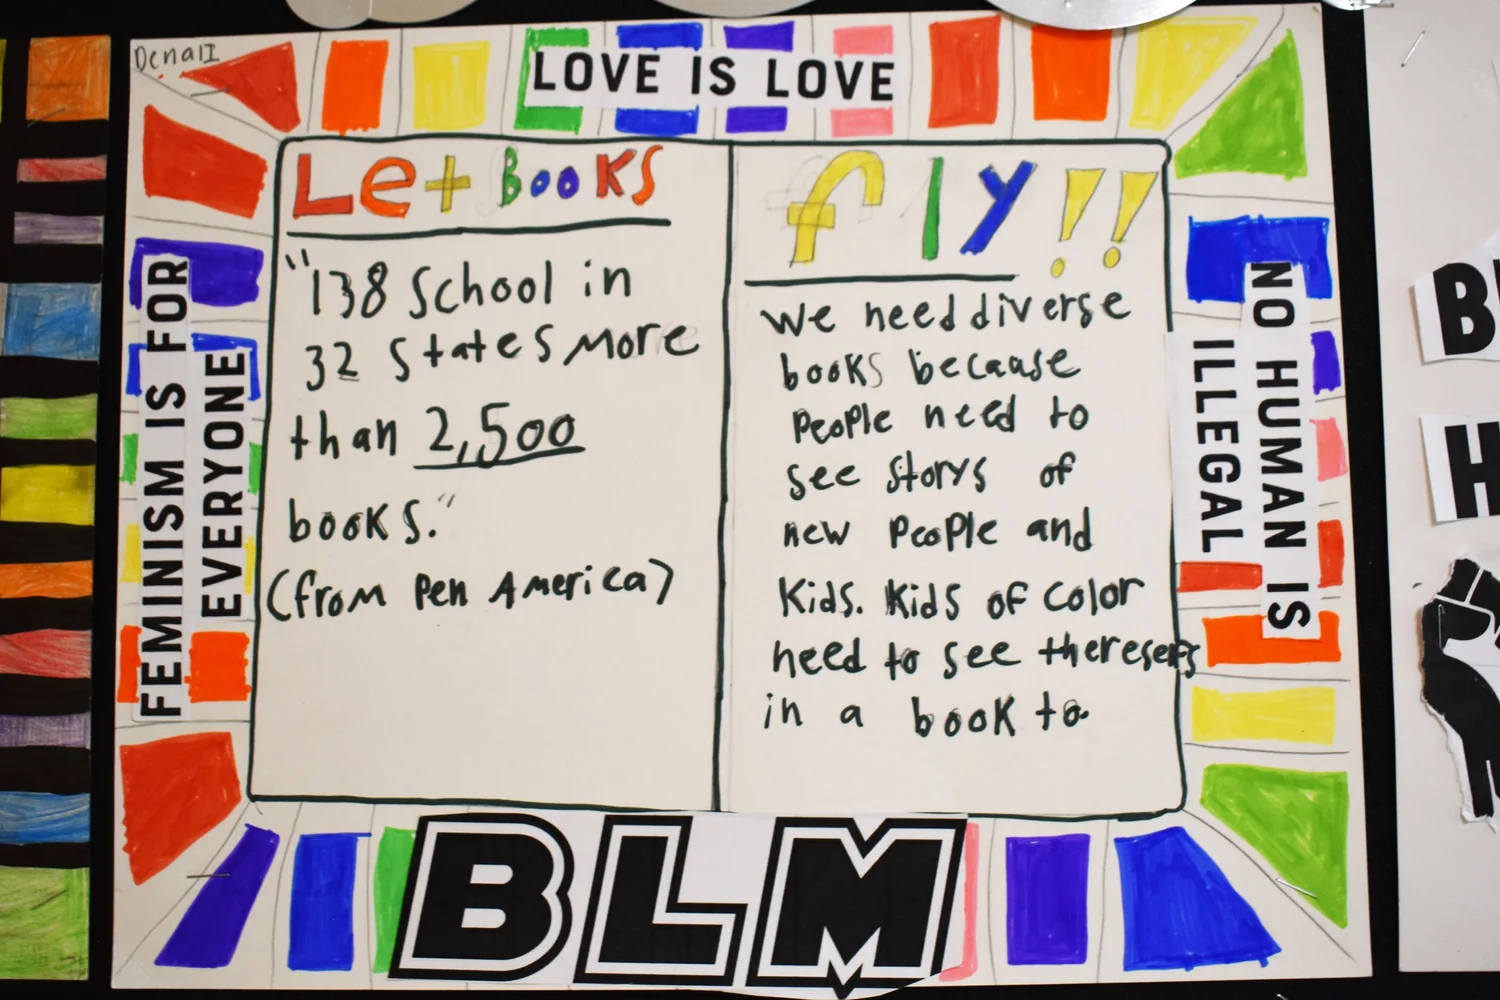 DenalI
LOVE IS LOVE
Let Books
"138 School in
32 States More
than 2,500
books."
(from Pen America)
fly!!
We need diverse
books because
People need to
see Storys of
new People and
Kids. Kids of Color
need to see theresefs
in a book to.
FEMINISM IS FOR
EVERYONE
NO HUMAN IS
ILLEGAL
BLM
B
H